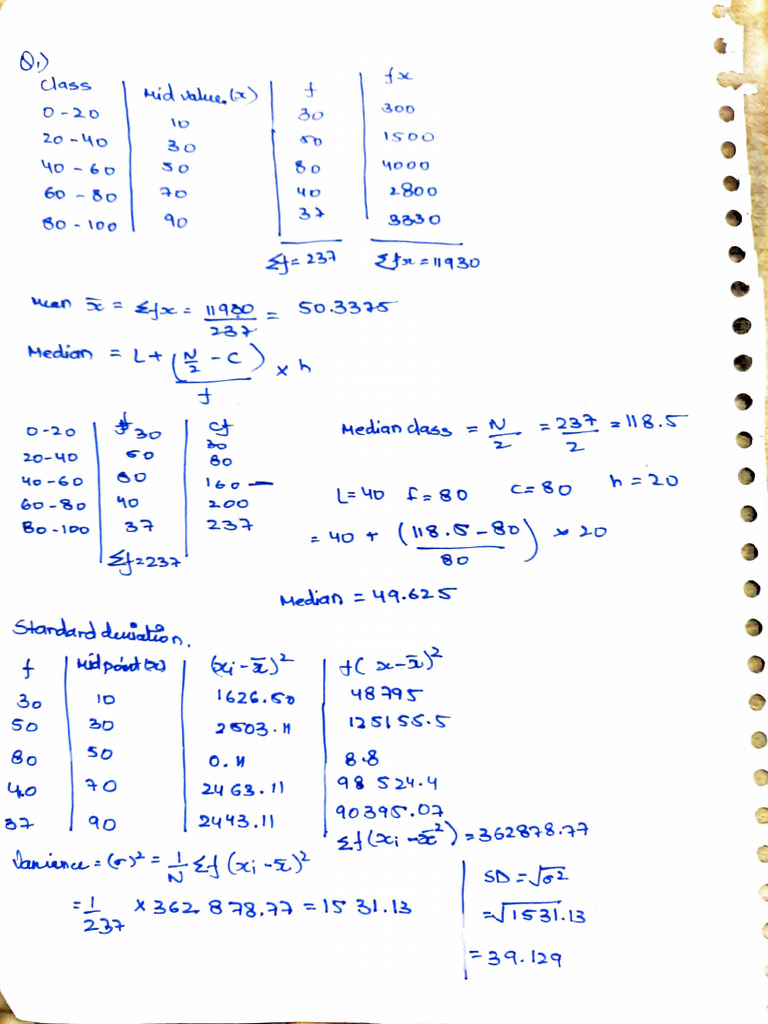 Q1)
Class | Mid value (x) | f | fx
0-20 | 10 | 30 | 300
20-40 | 30 | 50 | 1500
40-60 | 50 | 80 | 4000
60-80 | 70 | 40 | 2800
80-100 | 90 | 37 | 3330
Σf=237 Σfx=11930
mean x̄ = Σfx = 11930/237 = 50.3375
Median = L+(N/2 - C)/f × h
0-20 | f 30 | cf 30
20-40 | 50 | 80
40-60 | 80 | 160 —
60-80 | 40 | 200
80-100 | 37 | 237
Σf=237
Median class = N/2 = 237/2 = 118.5
L=40 f=80 C=80 h=20
= 40 + (118.5-80/80) × 20
Median = 49.625
Standard deviation.
f | Midpoint(x) | (xi-x̄)² | f(x-x̄)²
30 | 10 | 1626.50 | 48795
50 | 30 | 2503.11 | 125155.5
80 | 50 | 0.11 | 8.8
40 | 70 | 2463.11 | 98524.4
37 | 90 | 2443.11 | 90395.07
Σf(xi-x̄²)=362878.77
Variance=(σ)²=1/N Σf(xi-x̄)²
=1/237 × 362878.77=1531.13
SD=√σ2
=√1531.13
=39.129